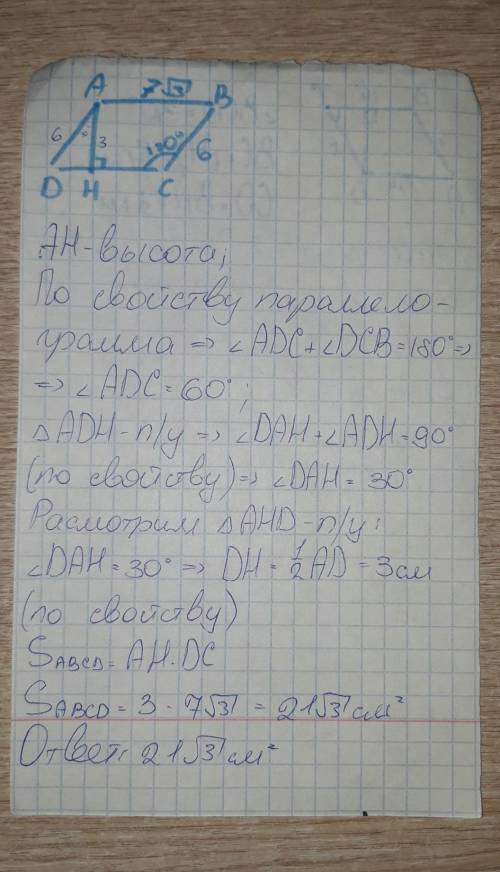 A 7√3 B
6 3 120° 6
D H C
AH-высота;
По свойству параллело-
грамма => ∠ADC+∠DCB=180°=>
=> ∠ADC=60°;
△ADH-п/у => ∠DAH+∠ADH=90°
(по свойству)=> ∠DAH = 30°
Расмотрим △AHD-п/у:
∠DAH=30°=> DH= 1/2 AD = 3см
(по свойству)
SABCD= AH·DC
SABCD = 3 · 7√3 = 21√3 см²
Ответ: 21√3 см²